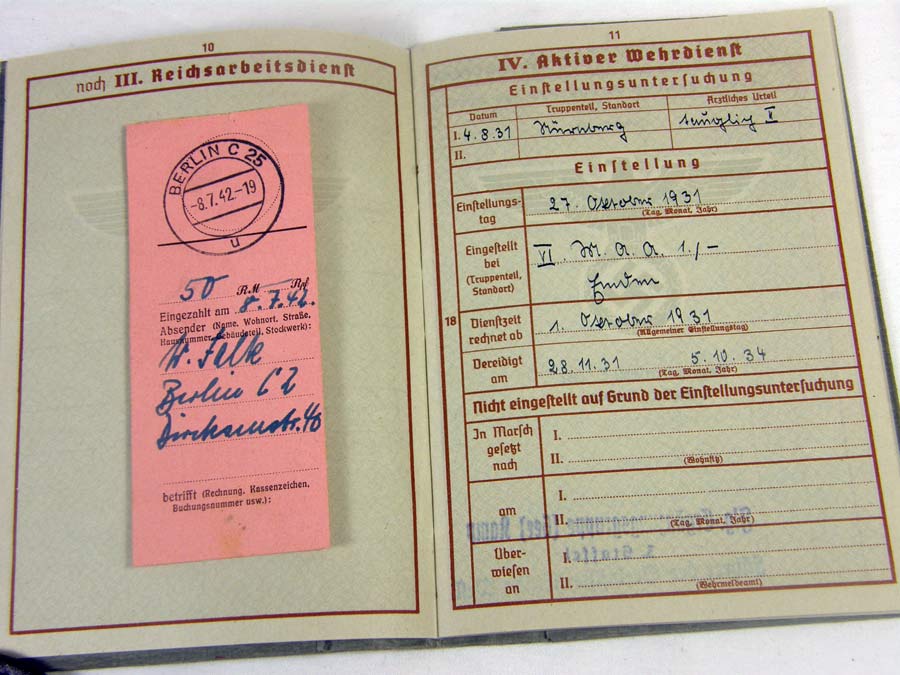 10
noch III. Reichsarbeitsdienst
BERLIN C 25
-8.7.42.-19
u
50 RM — Rpf
Eingezahlt am 8.7.42.
Absender (Name, Wohnort, Straße,
Hausnummer, Gebäudeteil, Stockwerk):
W. Falk
Berlin C 2
Dircksenstr. 40
betrifft (Rechnung, Kassenzeichen,
Buchungsnummer usw.):
11
IV. Aktiver Wehrdienst
Einstellungsuntersuchung
Datum Truppenteil, Standort Ärztliches Urteil
I. 4.8.31 Nürnberg tauglich I
II.
Einstellung
Einstellungs-
tag 27. Oktober 1931
(Tag, Monat, Jahr)
Eingestellt
bei
(Truppenteil,
Standort)
VI. M.A.A. 1./-
Emden
18 Dienstzeit
rechnet ab 1. Oktober 1931
(Allgemeiner Einstellungstag)
Vereidigt
am 28.11.31 5.10.34
(Tag, Monat, Jahr)
Nicht eingestellt auf Grund der Einstellungsuntersuchung
In Marsch
gesetzt
nach
I.
II.
(Wohnsitz)
am
I.
II.
(Tag, Monat, Jahr)
Über-
wiesen
an
I.
II.
(Wehrmeldeamt)